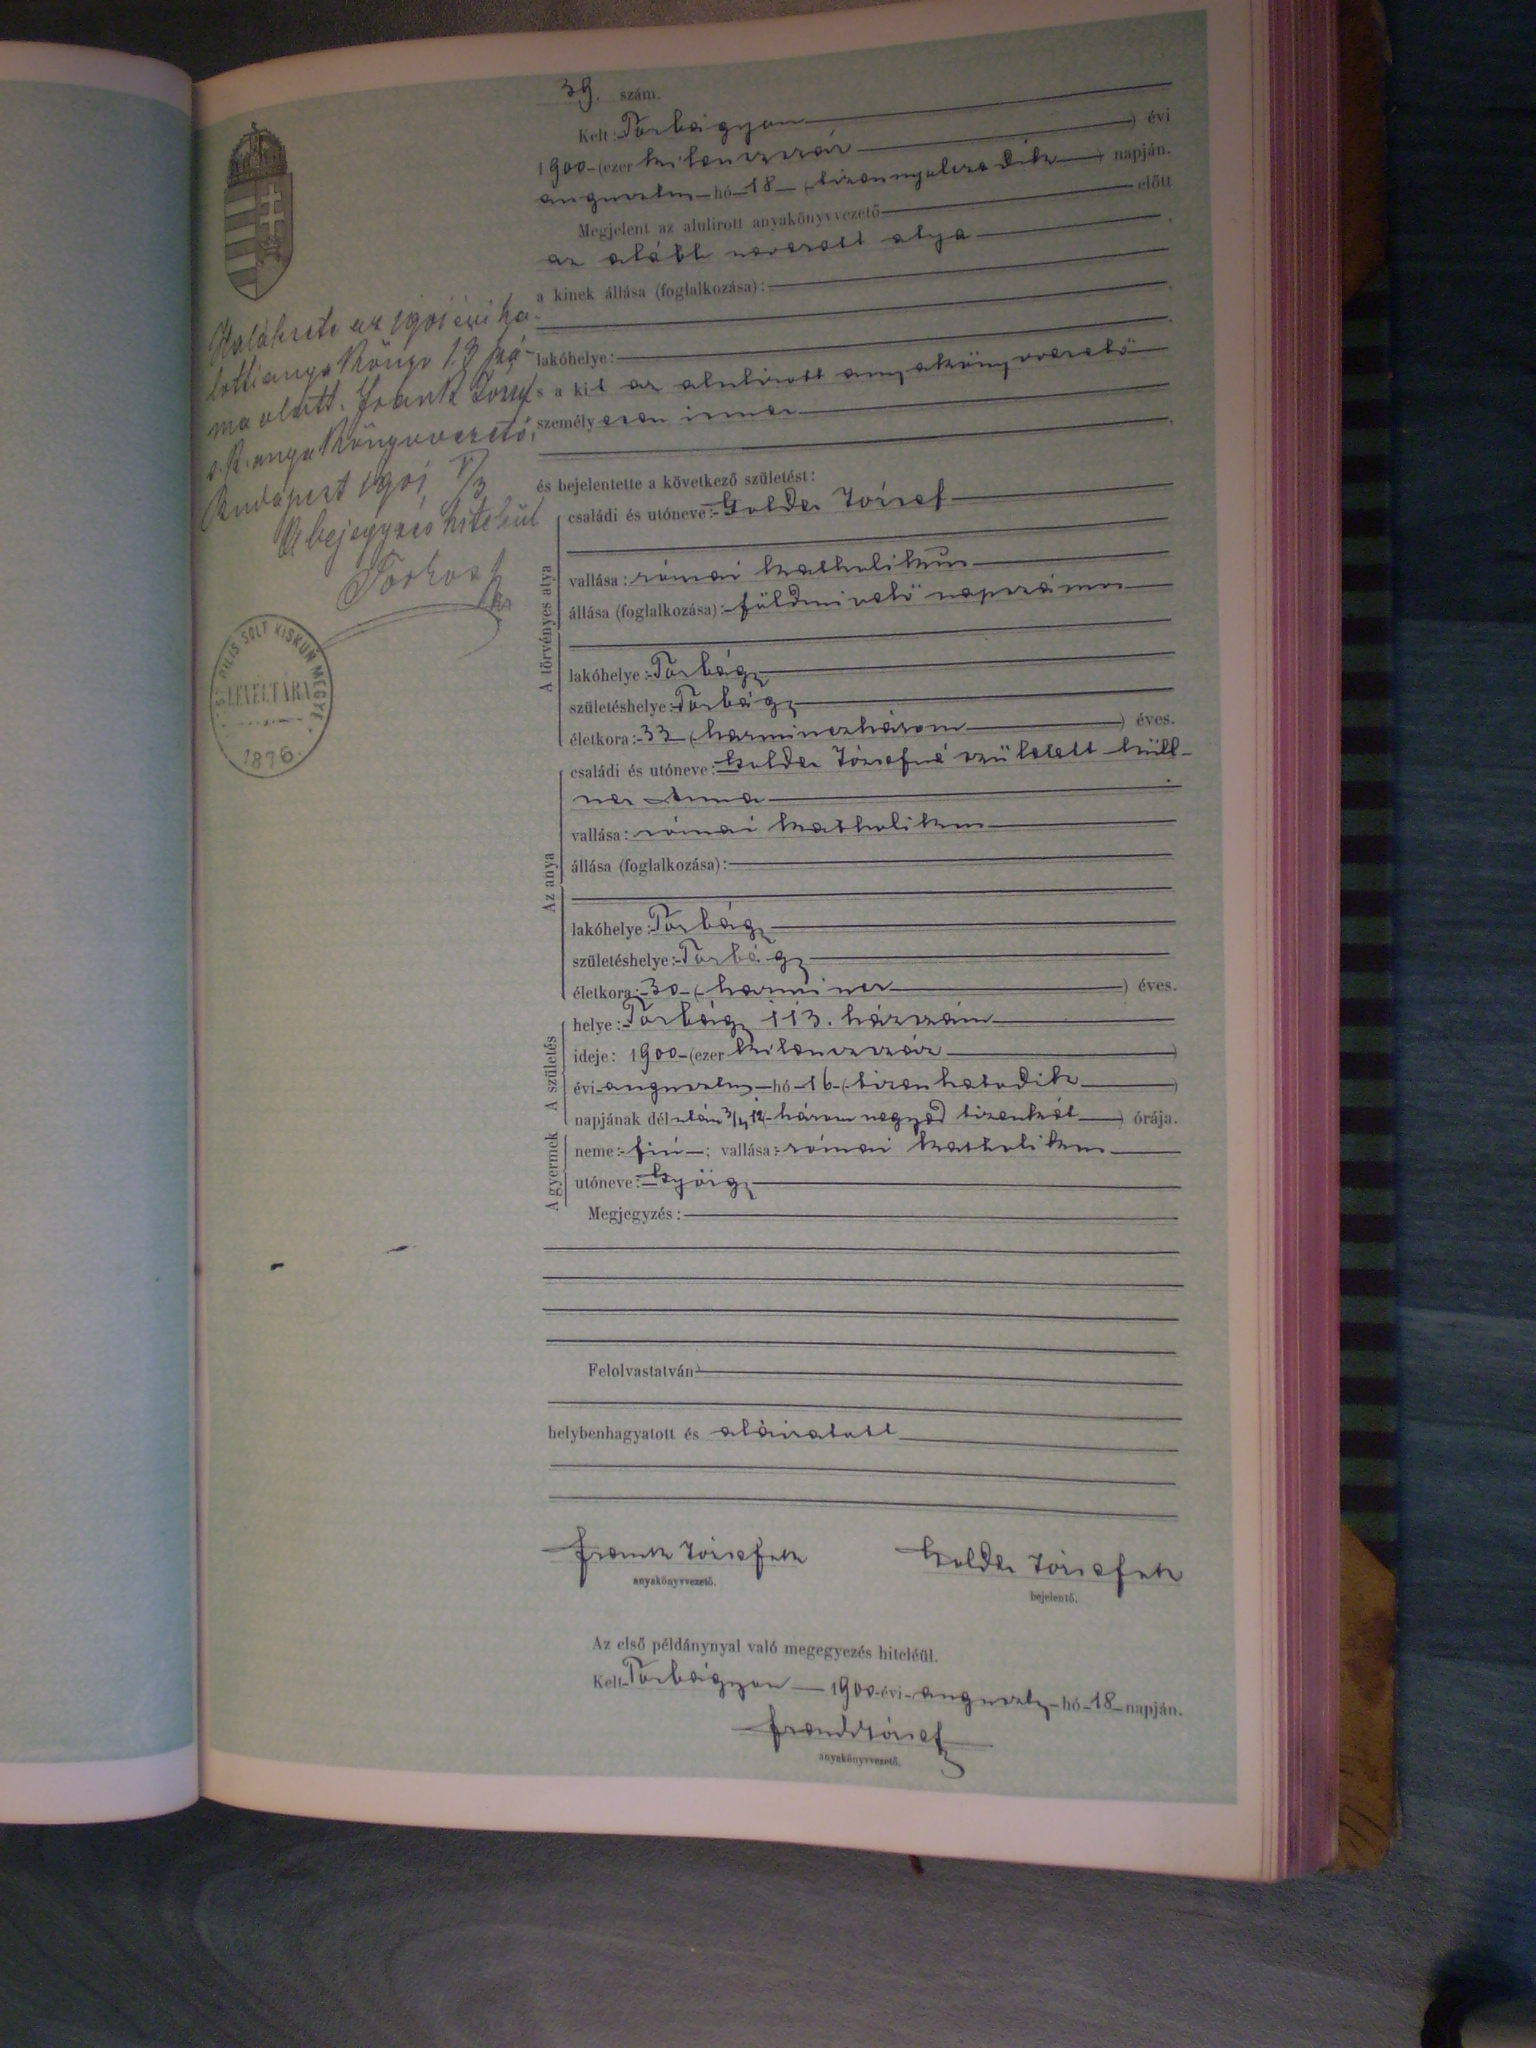 39. szám.
Kelt: Torbágyon ) évi
1900 (ezer kilenczszáz
augusztus hó 18 (tizennyolczadik ) napján.
Megjelent az alulirott anyakönyvvezető előtt
az alább nevezett atya
a kinek állása (foglalkozása):
lakóhelye:
s a kit az alulirott anyakönyvvezető
személyesen ismer
és bejelentette a következő születést:
A törvényes atya
családi és utóneve: Golder József
vallása: római katholikus
állása (foglalkozása): földmivelő napszámos
lakóhelye: Torbágy
születéshelye: Torbágy
életkora: 33 (harminczhárom ) éves.
Az anya
családi és utóneve: Golder Józsefné született Küll-
ner Anna
vallása: római katholikus
állása (foglalkozása):
lakóhelye: Torbágy
születéshelye: Torbágy
életkora: 30 (harmincz ) éves.
A születés
helye: Torbágy 113. házszám
ideje: 1900 (ezer kilenczszáz )
évi augusztus hó 16 (tizenhatodik )
napjának délután 3/4 12 három negyed tizenkét ) órája.
A gyermek
neme: fiú ; vallása: római katholikus
utóneve: György
Megjegyzés:
Felolvastatván
helybenhagyatott és aláiratott
Frank Józsefsk
anyakönyvvezető.
Golder Józsefsk
bejelentő.
Az első példánynyal való megegyezés hiteléül.
Kelt Torbágyon 1900 évi augusztus hó 18 napján.
Frank József
anyakönyvvezető.
Halálesete az 1901 évi ha-
lotti anyakönyv 13 szá-
ma alatt. Frank József
s. k. anyakönyvvezető.
Budapest 1901 V/3
A bejegyzés hiteléül
PILIS SOLT KISKUN MEGYE
LEVÉLTÁRA
1876.